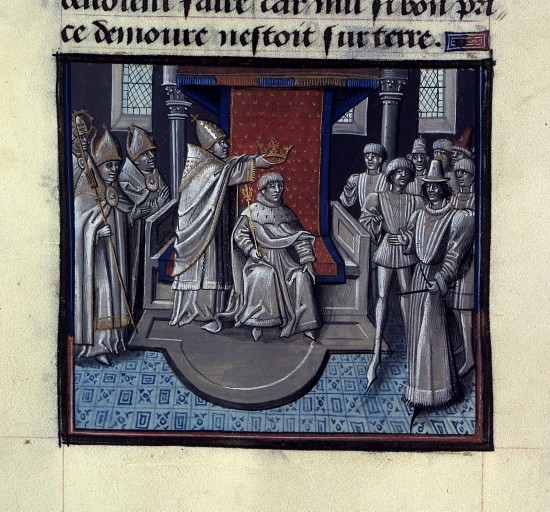 tenoient faire car nul si bon pri
ce demoure nestoit sur terre.